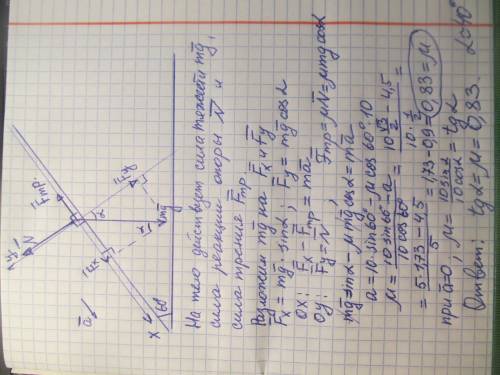 y
N
Fтр.
a
Fx
Fy
α
α
mg
x
60°
На тело действует сила тяжести mg,
сила реакции опоры N и
сила трения Fтр.
Разложим mg на Fx и Fy
Fx = mg · sinα, Fy = mg cosα
ox: Fx - Fтр = ma
oy: Fy = N, Fтр = μN = μmg cosα
mg sinα - μ mg cosα = ma
a = 10 · sin60° - μ cos60° · 10
μ = (10 sin60° - a) / (10 cos60°) = (10 √3/2 - 4,5) / (10 · 1/2) =
= (5·1,73 - 4,5) / 5 = 1,73 - 0,9 = 0,83 = μ
при a=0, μ = 10 sinα / 10 cosα = tgα
Ответ: tgα = μ = 0,83. α≈40°